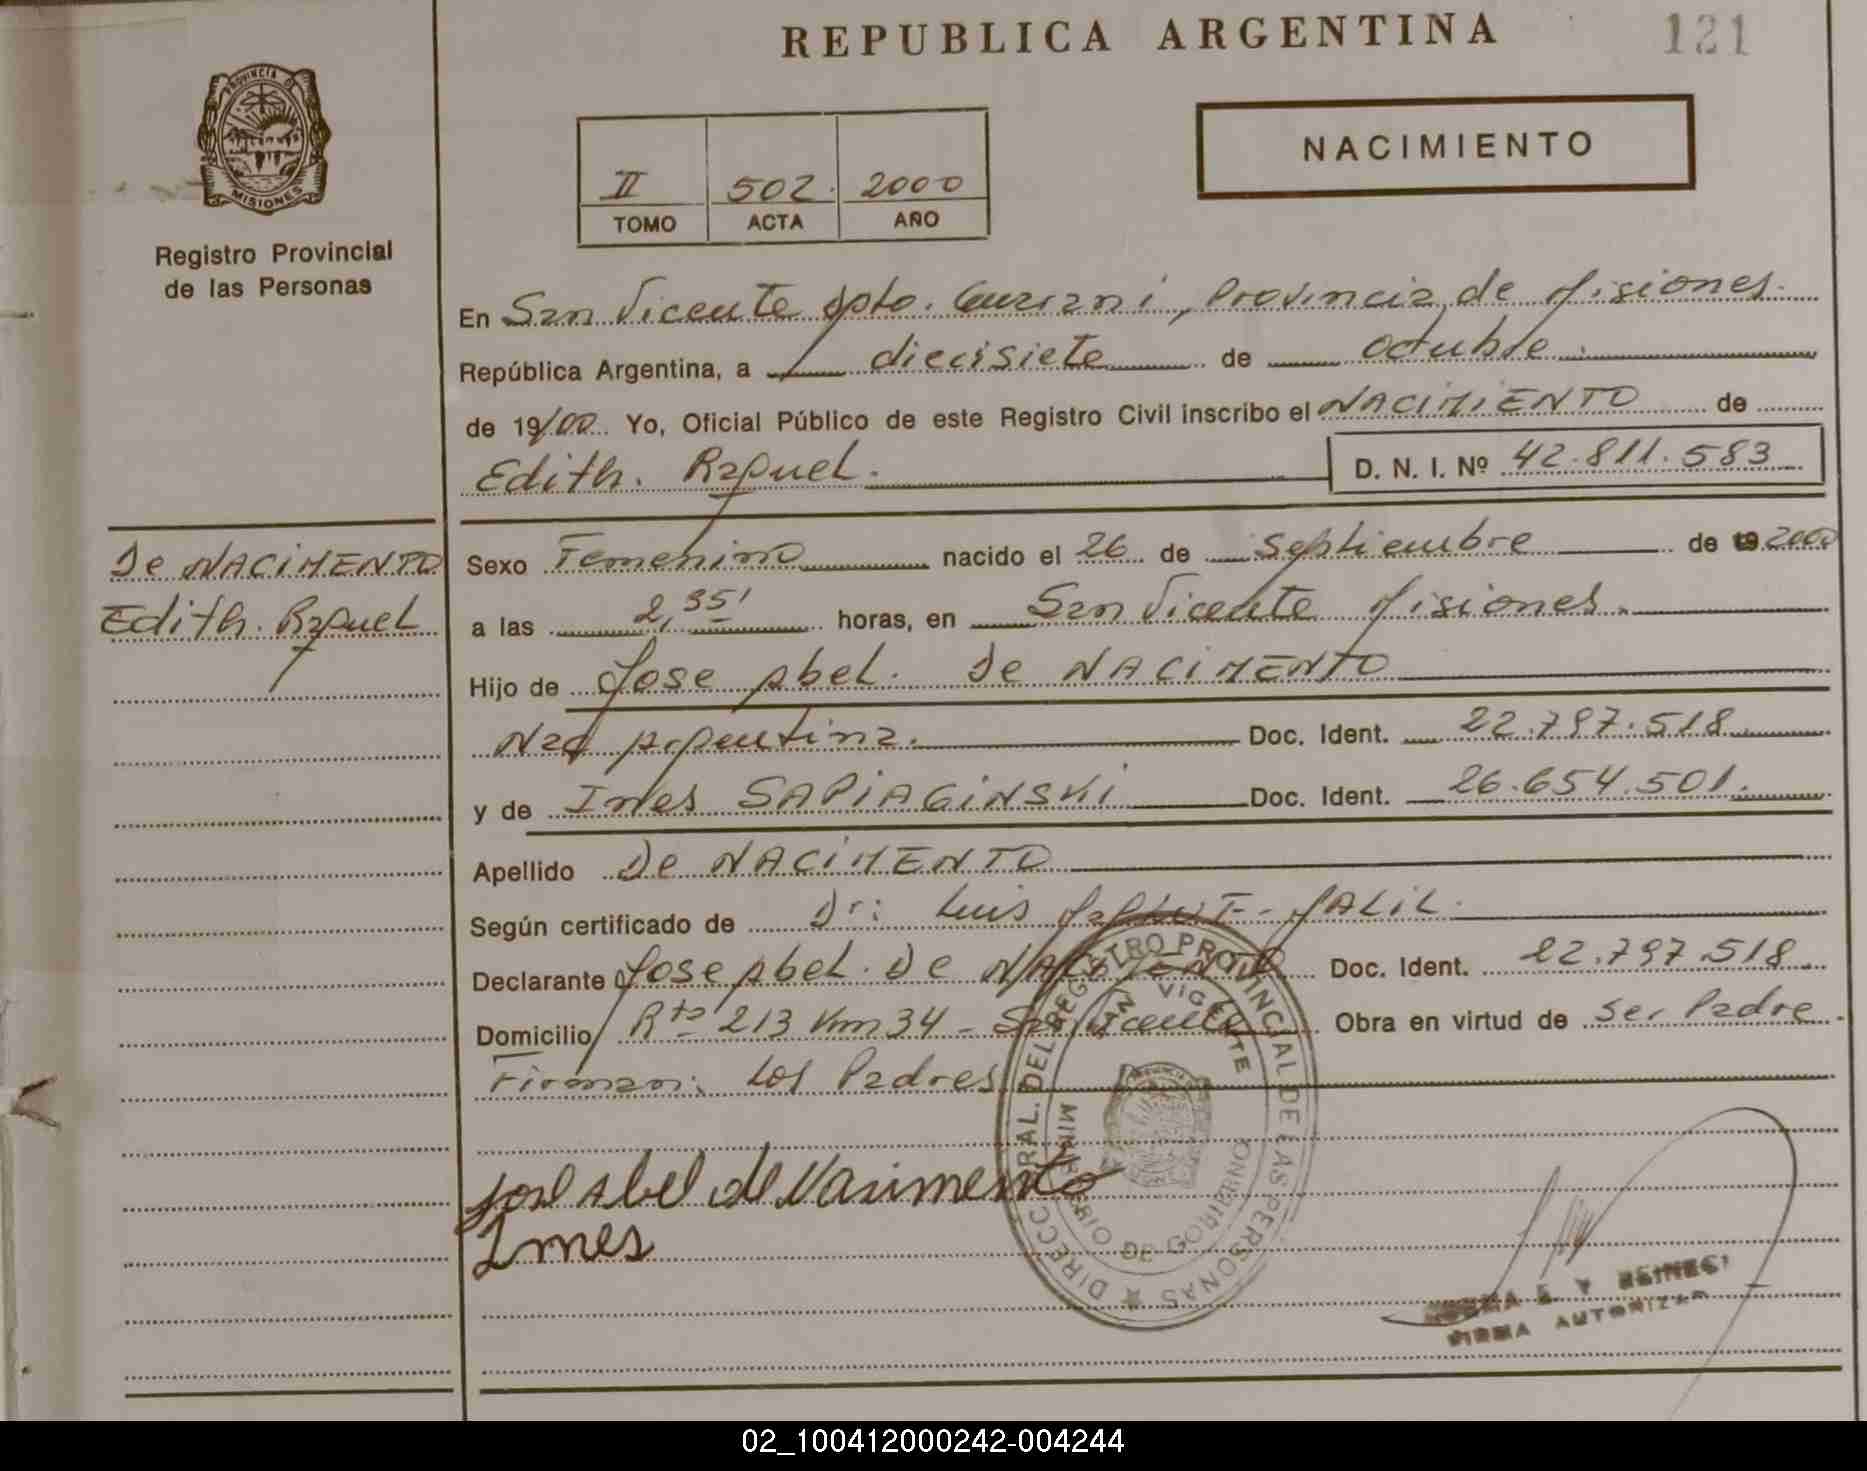 REPUBLICA ARGENTINA
121
PROVINCIA DE
MISIONES
Registro Provincial
de las Personas
II 502. 2000
TOMO ACTA AÑO
NACIMIENTO
En San Vicente Dpto. Guarani, Provincia de Misiones.
República Argentina, a diecisiete de octubre.
de 19/00 Yo, Oficial Público de este Registro Civil inscribo el NACIMIENTO de
Edith. Raquel.
D. N. I. Nº 42.811.583
De NACIMENTO
Edith. Raquel
Sexo Femenino nacido el 26 de Septiembre de 19 2000
a las 2,35' horas, en San Vicente Misiones.
Hijo de Jose Abel. De NACIMENTO
Nac Argentina. Doc. Ident. 22.797.518
y de Ines SAPIAGINSKI Doc. Ident. 26.654.501.
Apellido De NACIMENTO
Según certificado de Dr: Luis JALIL.
Declarante Jose Abel. De NACIMENTO Doc. Ident. 22.797.518
Domicilio Rta 213 Km 34 - San Vicente Obra en virtud de ser Padre.
Firman: Los Padres
José Abel de Nacimento
Ines
DIRECC. GRAL. DEL REGISTRO PROVINCIAL DE LAS PERSONAS
SAN VICENTE
MINISTERIO DE GOBIERNO
FIRMA AUTORIZAD
02_100412000242-004244